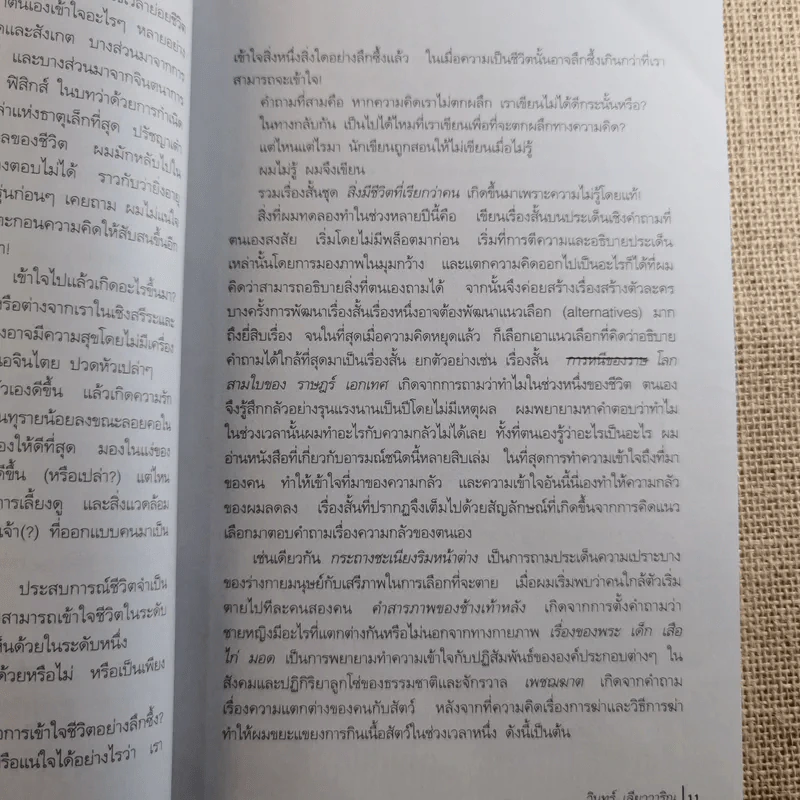 เวลาย่อยชีวิต
าตนเองเข้าใจอะไรๆ หลายอย่าง
ดและสังเกต บางส่วนมาจากการ
และบางส่วนมาจากจินตนาการ
ฟิสิกส์ ในบทว่าด้วยการกำเนิด
ล่าแห่งธาตุเล็กที่สุด ปรัชญาเต๋า
ลของชีวิต ผมมักหลับไปใน
งตอบไม่ได้ ราวกับว่ายิ่งอายุ
รุ่นก่อนๆ เคยถาม ผมไม่แน่ใจ
ะกอนความคิดให้สับสนขึ้นอีก
า!
เข้าใจไปแล้วเกิดอะไรขึ้นมา?
รือต่างจากเราในเชิงสรีระและ
งอาจมีความสุขโดยไม่มีเครื่อง
นอจินไตย ปวดหัวเปล่าๆ
ัวเองดีขึ้น แล้วเกิดความรัก
นทุรายน้อยลงขณะลอยคอใน
องให้ดีที่สุด มองในแง่ของ
ดีขึ้น (หรือเปล่า?) แต่ไหน
การเลี้ยงดู และสิ่งแวดล้อม
เจ้า(?) ที่ออกแบบคนมาเป็น
ประสบการณ์ชีวิตจำเป็น
สามารถเข้าใจชีวิตในระดับ
ห็นด้วยในระดับหนึ่ง
ด้วยหรือไม่ หรือเป็นเพียง
งการเข้าใจชีวิตอย่างลึกซึ้ง?
รือแน่ใจได้อย่างไรว่า เรา
เข้าใจสิ่งหนึ่งสิ่งใดอย่างลึกซึ้งแล้ว ในเมื่อความเป็นชีวิตนั้นอาจลึกซึ้งเกินกว่าที่เรา
สามารถจะเข้าใจ!
คำถามที่สามคือ หากความคิดเราไม่ตกผลึก เราเขียนไม่ได้ดีกระนั้นหรือ?
ในทางกลับกัน เป็นไปได้ไหมที่เราเขียนเพื่อที่จะตกผลึกทางความคิด?
แต่ไหนแต่ไรมา นักเขียนถูกสอนให้ไม่เขียนเมื่อไม่รู้
ผมไม่รู้ ผมจึงเขียน
รวมเรื่องสั้นชุด สิ่งมีชีวิตที่เรียกว่าคน เกิดขึ้นมาเพราะความไม่รู้โดยแท้!
สิ่งที่ผมทดลองทำในช่วงหลายปีนี้คือ เขียนเรื่องสั้นบนประเด็นเชิงคำถามที่
ตนเองสงสัย เริ่มโดยไม่มีพล็อตมาก่อน เริ่มที่การตีความและอธิบายประเด็น
เหล่านั้นโดยการมองภาพในมุมกว้าง และแตกความคิดออกไปเป็นอะไรก็ได้ที่ผม
คิดว่าสามารถอธิบายสิ่งที่ตนเองถามได้ จากนั้นจึงค่อยสร้างเรื่องสร้างตัวละคร
บางครั้งการพัฒนาเรื่องสั้นเรื่องหนึ่งอาจต้องพัฒนาแนวเลือก (alternatives) มาก
ถึงยี่สิบเรื่อง จนในที่สุดเมื่อความคิดหยุดแล้ว ก็เลือกเอาแนวเลือกที่คิดว่าอธิบาย
คำถามได้ใกล้ที่สุดมาเป็นเรื่องสั้น ยกตัวอย่างเช่น เรื่องสั้น การหนีของราษ โลก
สามใบของ ราษฎร์ เอกเทศ เกิดจากการถามว่าทำไมในช่วงหนึ่งของชีวิต ตนเอง
จึงรู้สึกกลัวอย่างรุนแรงนานเป็นปีโดยไม่มีเหตุผล ผมพยายามหาคำตอบว่าทำไม
ในช่วงเวลานั้นผมทำอะไรกับความกลัวไม่ได้เลย ทั้งที่ตนเองรู้ว่าอะไรเป็นอะไร ผม
อ่านหนังสือที่เกี่ยวกับอารมณ์ชนิดนี้หลายสิบเล่ม ในที่สุดการทำความเข้าใจถึงที่มา
ของคน ทำให้เข้าใจที่มาของความกลัว และความเข้าใจอันนี้นี่เองทำให้ความกลัว
ของผมลดลง เรื่องสั้นที่ปรากฏจึงเต็มไปด้วยสัญลักษณ์ที่เกิดขึ้นจากการคิดแนว
เลือกมาตอบคำถามเรื่องความกลัวของตนเอง
เช่นเดียวกัน กระถางชะเนียงริมหน้าต่าง เป็นการถามประเด็นความเปราะบาง
ของร่างกายมนุษย์กับเสรีภาพในการเลือกที่จะตาย เมื่อผมเริ่มพบว่าคนใกล้ตัวเริ่ม
ตายไปทีละคนสองคน คำสารภาพของช้างเท้าหลัง เกิดจากการตั้งคำถามว่า
ชายหญิงมีอะไรที่แตกต่างกันหรือไม่นอกจากทางกายภาพ เรื่องของพระ เด็ก เสือ
ไก่ มอด เป็นการพยายามทำความเข้าใจกับปฏิสัมพันธ์ขององค์ประกอบต่างๆ ใน
สังคมและปฏิกิริยาลูกโซ่ของธรรมชาติและจักรวาล เพชฌฆาต เกิดจากคำถาม
เรื่องความแตกต่างของคนกับสัตว์ หลังจากที่ความคิดเรื่องการฆ่าและวิธีการฆ่า
ทำให้ผมขยะแขยงการกินเนื้อสัตว์ในช่วงเวลาหนึ่ง ดังนี้เป็นต้น
วินทร์ เลียววาริณ | 11